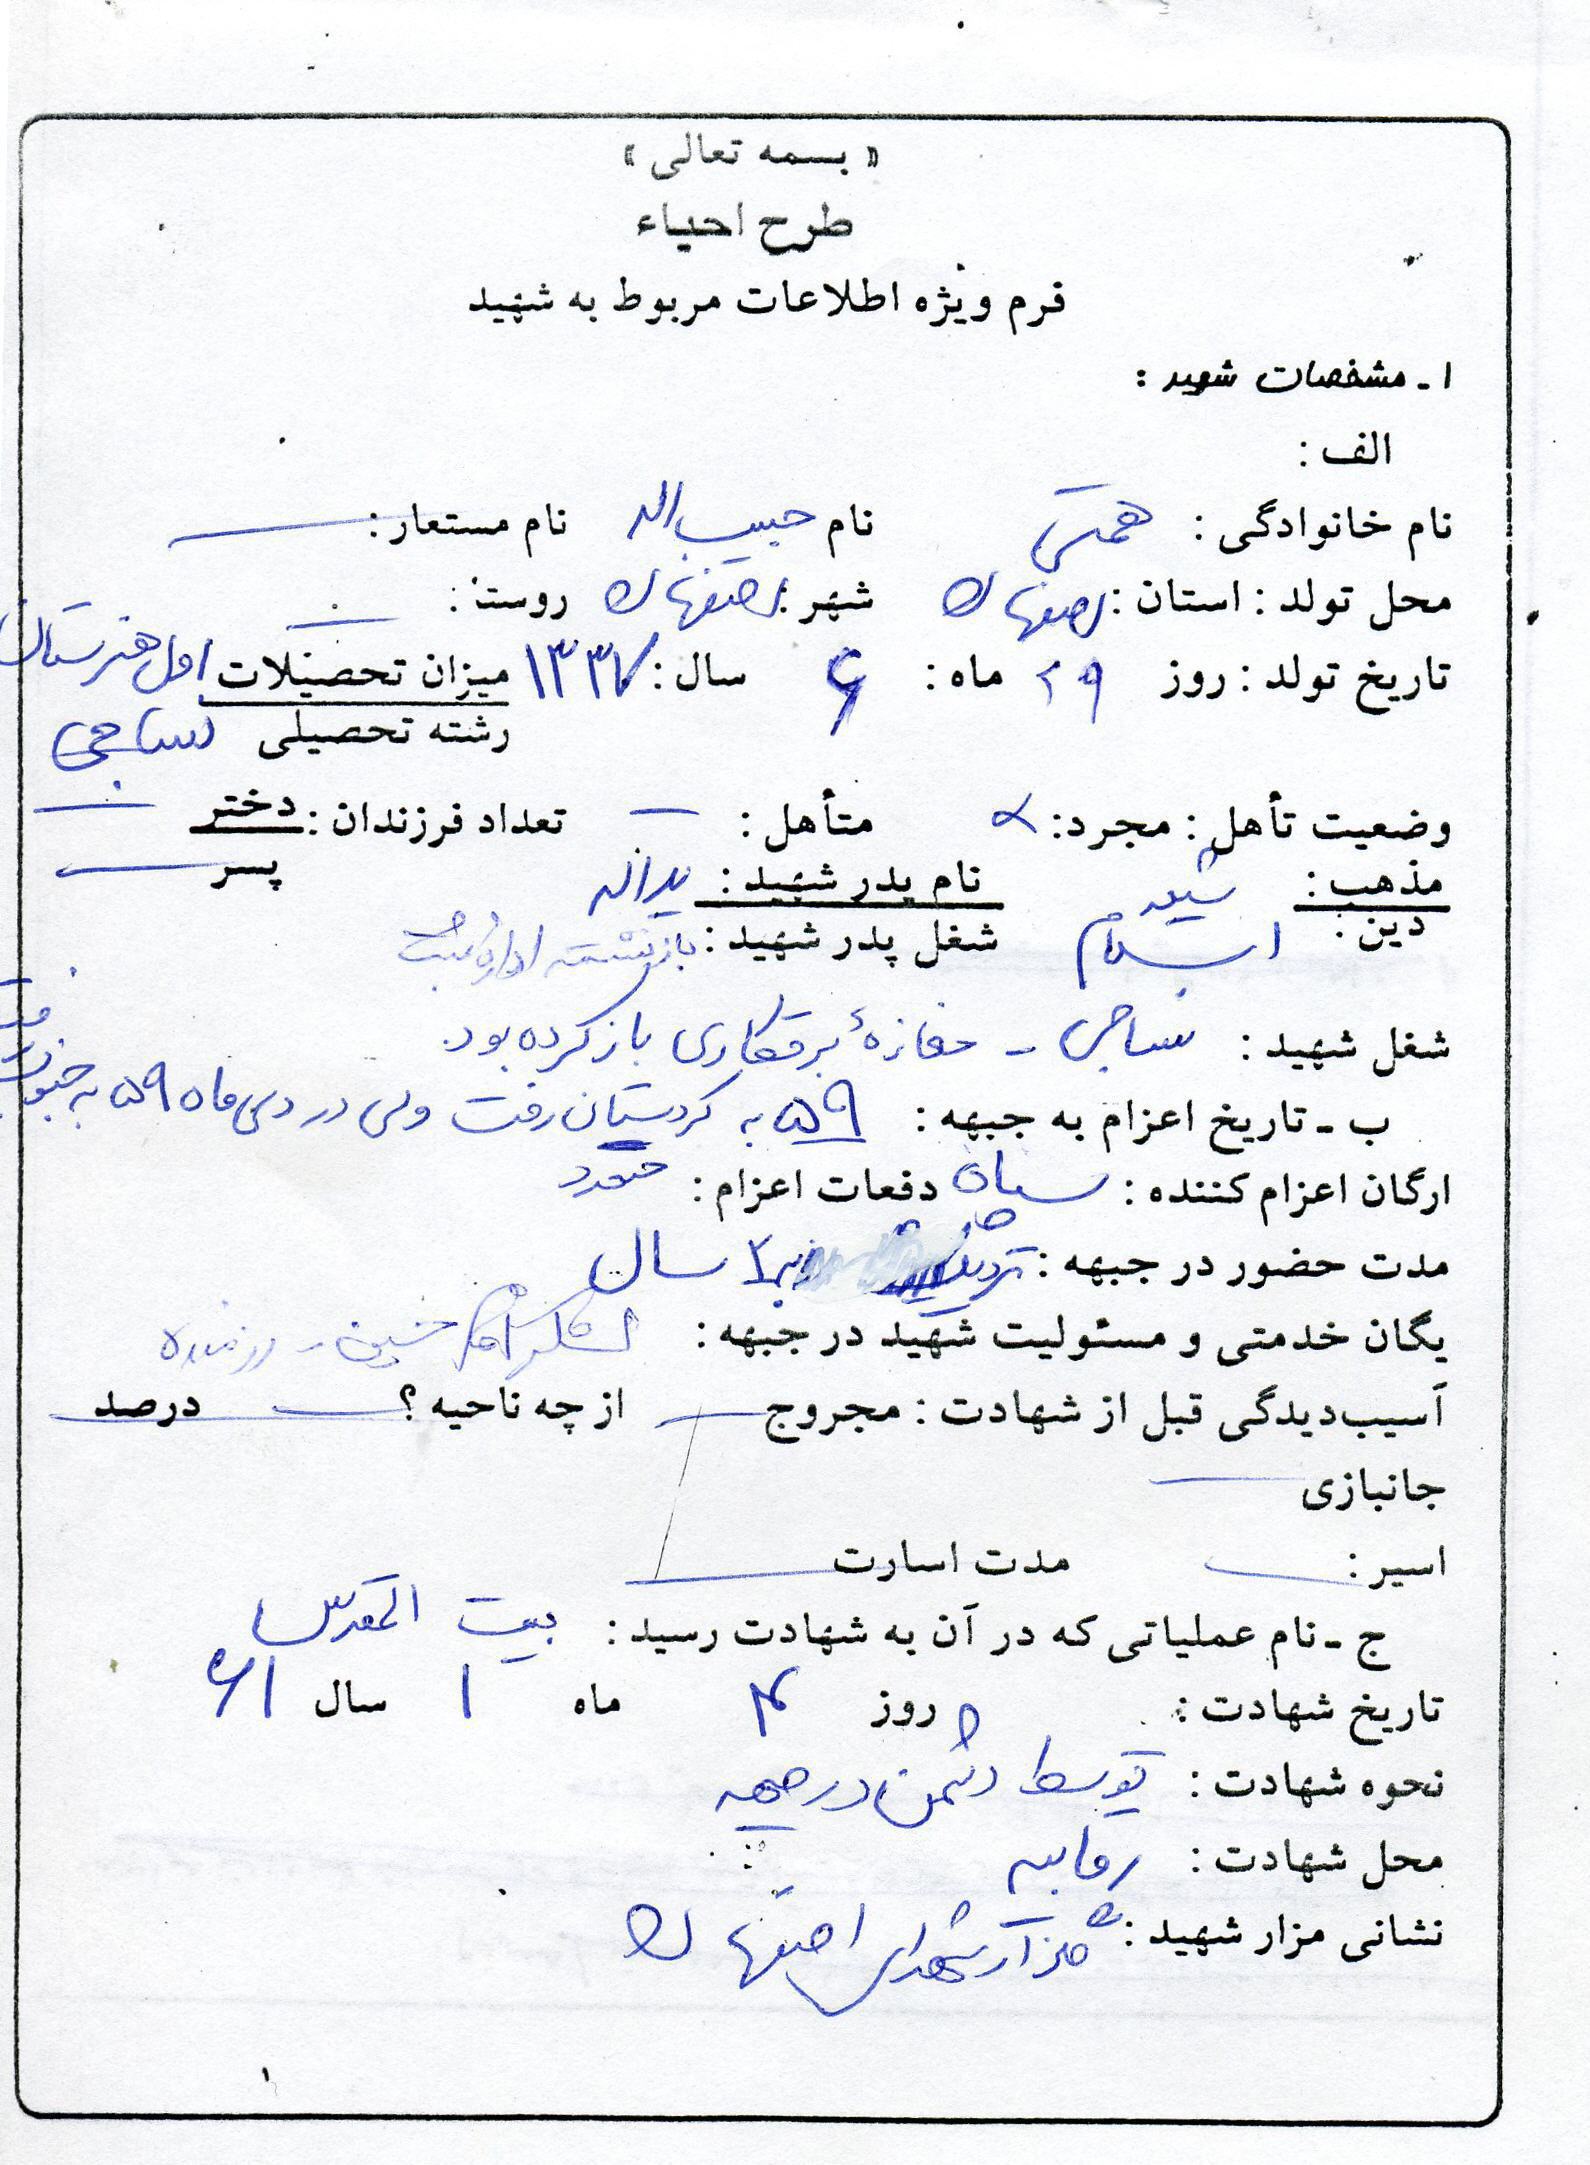 « بسمه تعالی »
طرح احیاء
فرم ویژه اطلاعات مربوط به شهید
۱ ـ مشخصات شهید :
الف :
نام خانوادگی : همتی نام حبیب اله نام مستعار :
محل تولد : استان : اصفهان شهر : اصفهان روستا :
تاریخ تولد : روز ۲۹ ماه : ۶ سال : ۱۳۳۷ میزان تحصیلات اول هنرستان
رشته تحصیلی نساجی
وضعیت تأهل : مجرد : متأهل : تعداد فرزندان : دختر
پسر
مذهب : شیعه نام پدر شهید : یداله
دین : اسلام شغل پدر شهید : بازنشسته اداره
شغل شهید : نساجی - مغازهٔ برقکاری باز کرده بود.
ب ـ تاریخ اعزام به جبهه : ۵۹ به کردستان رفت ولی در دی ماه ۵۹ به جنوب رفت
ارگان اعزام کننده : سپاه دفعات اعزام : متعدد
مدت حضور در جبهه : ۲ سال
یگان خدمتی و مسئولیت شهید در جبهه : لشکر امام حسین - رزمنده
آسیب‌دیدگی قبل از شهادت : مجروح از چه ناحیه ؟ درصد
جانبازی
اسیر : مدت اسارت
ج ـ نام عملیاتی که در آن به شهادت رسید : بیت المقدس
تاریخ شهادت : روز ۴ ماه ۱ سال ۶۱
نحوه شهادت : توسط دشمن در جبهه
محل شهادت : رقابیه
نشانی مزار شهید : گلزار شهدای اصفهان
۱